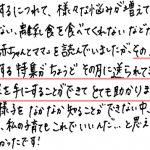 するにつれて、様々な悩みが増えて
ない、離乳食を食べてくれないなど
赤ちゃんとママを読んでいましたが、その
する特集がちょうどその月に送られてき
を手にすることができてとても助かりま
様子をなかなか知ることができない中、
、私の子育てもこれでいいんだ…と思え
かったです!